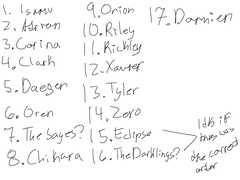 1. Isamu
2. Adrian
3. Carina
4. Clark
5. Daegen
6. Oren
7. The Sages?
8. Chihara
9. Orion
10. Riley
11. Richley
12. Xavier
13. Tyler
14. Zero
15. Eclipse
16. The Darklings?
Idk if they was the correct order
17. Damien